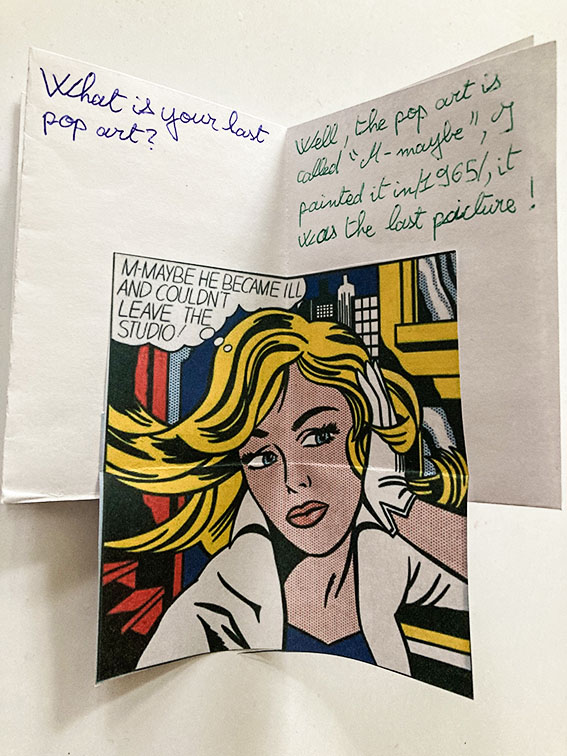 What is your last
pop art?
Well, the pop art is
called "M-maybe", I
painted it in/1965/, it
was the last paicture!
M-MAYBE HE BECAME ILL
AND COULDN'T
LEAVE THE
STUDIO!